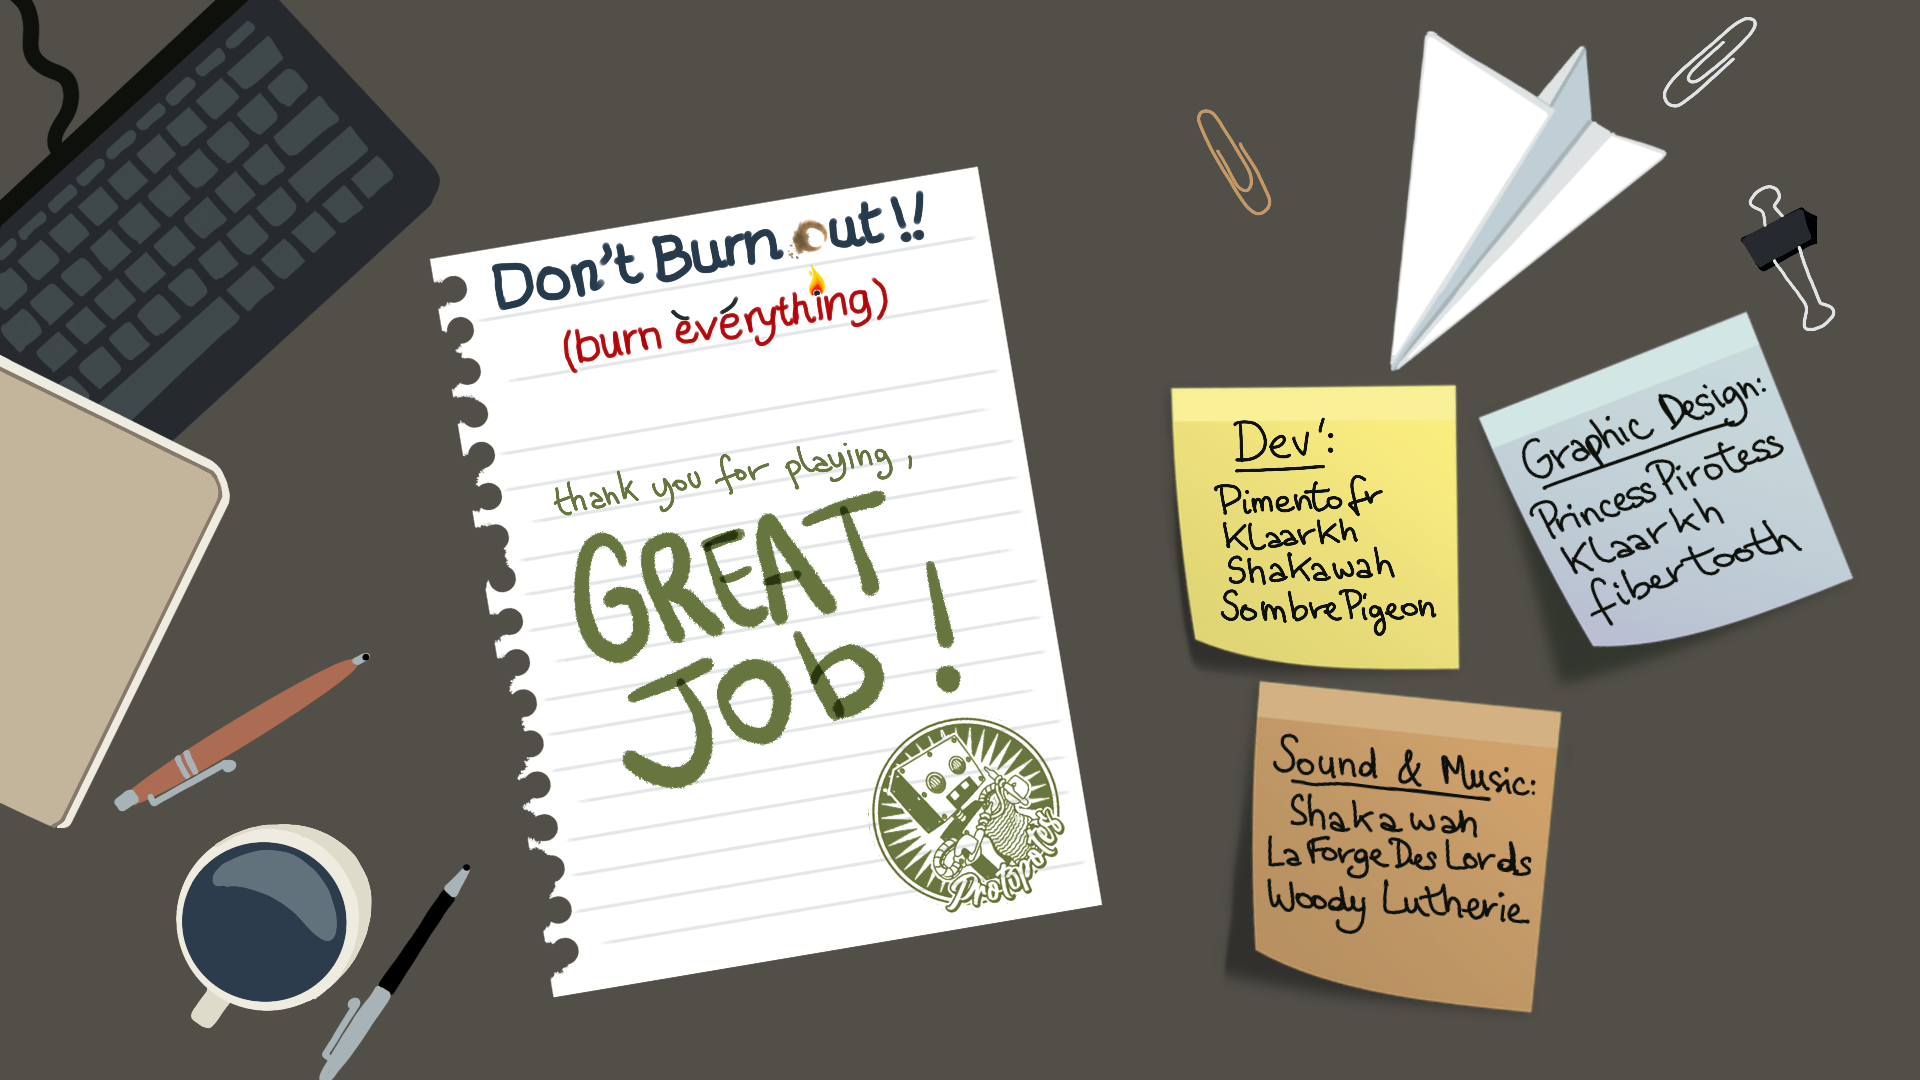 Don't Burn out!!
(burn everything)
thank you for playing,
GREAT
Job!
Protopotes
Dev':
Pimentofr
Klaarkh
Shakawah
SombrePigeon
Graphic Design:
PrincessPirotess
Klaarkh
fibertooth
Sound & Music:
Shakawah
LaForgeDesLords
Woody Lutherie